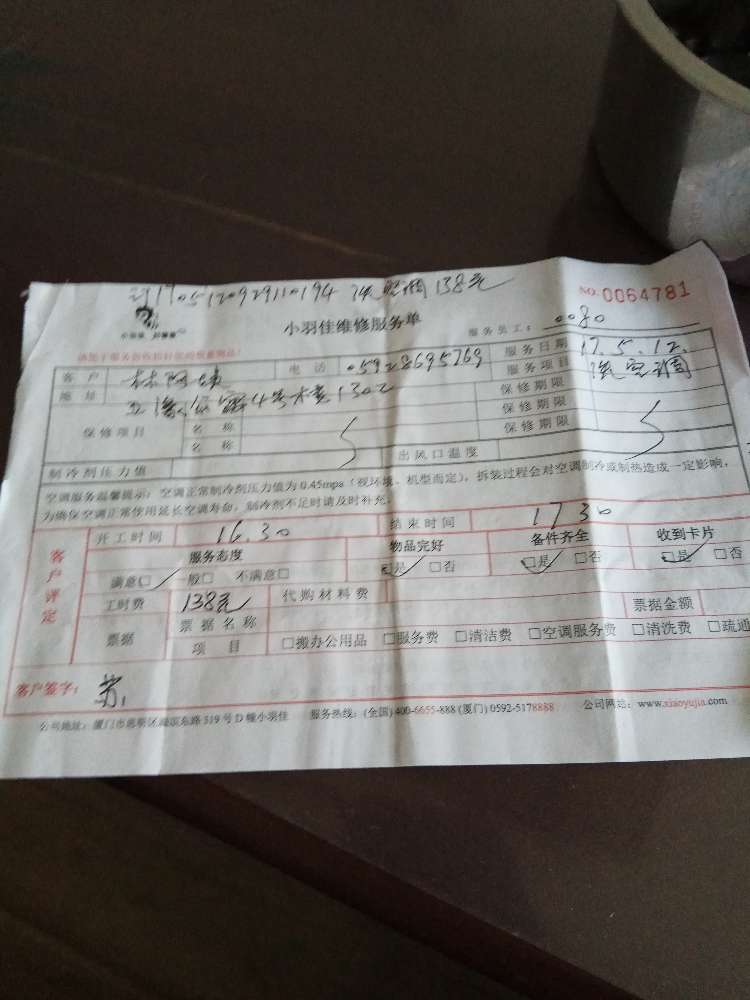 单1705120929110194 洗空调138元
NO. 0064781
小羽佳维修服务单
服务员工: 0080
客户 电话 05928695769 服务日期 17.5.12.
地址 4号楼1302 服务项目 洗空调
保修项目 名称 保修期限
名称 保修期限
保修期限
制冷剂压力值 出风口温度
空调服务温馨提示: 空调正常制冷剂压力值为0.45mpa (视环境、机型而定), 拆装过程会对空调制冷或制热造成一定影响,
为确保空调正常使用延长空调寿命, 制冷剂不足时请及时补充。
客户评定
开工时间 16.30 结束时间 17 30
服务态度 物品完好 备件齐全 收到卡片
满意□ 一般□ 不满意□ □是 □否 □是 □否 □是 □否
工时费 138元 代购材料费 票据金额
票据 票据名称
项目 □搬办公用品 □服务费 □清洁费 □空调服务费 □清洗费 □疏通
客户签字:
公司地址: 厦门市思明区湖滨东路319号D幢小羽佳 服务热线: (全国) 400-6655-888 (厦门) 0592-5178888 公司网站: www.xiaoyujia.com